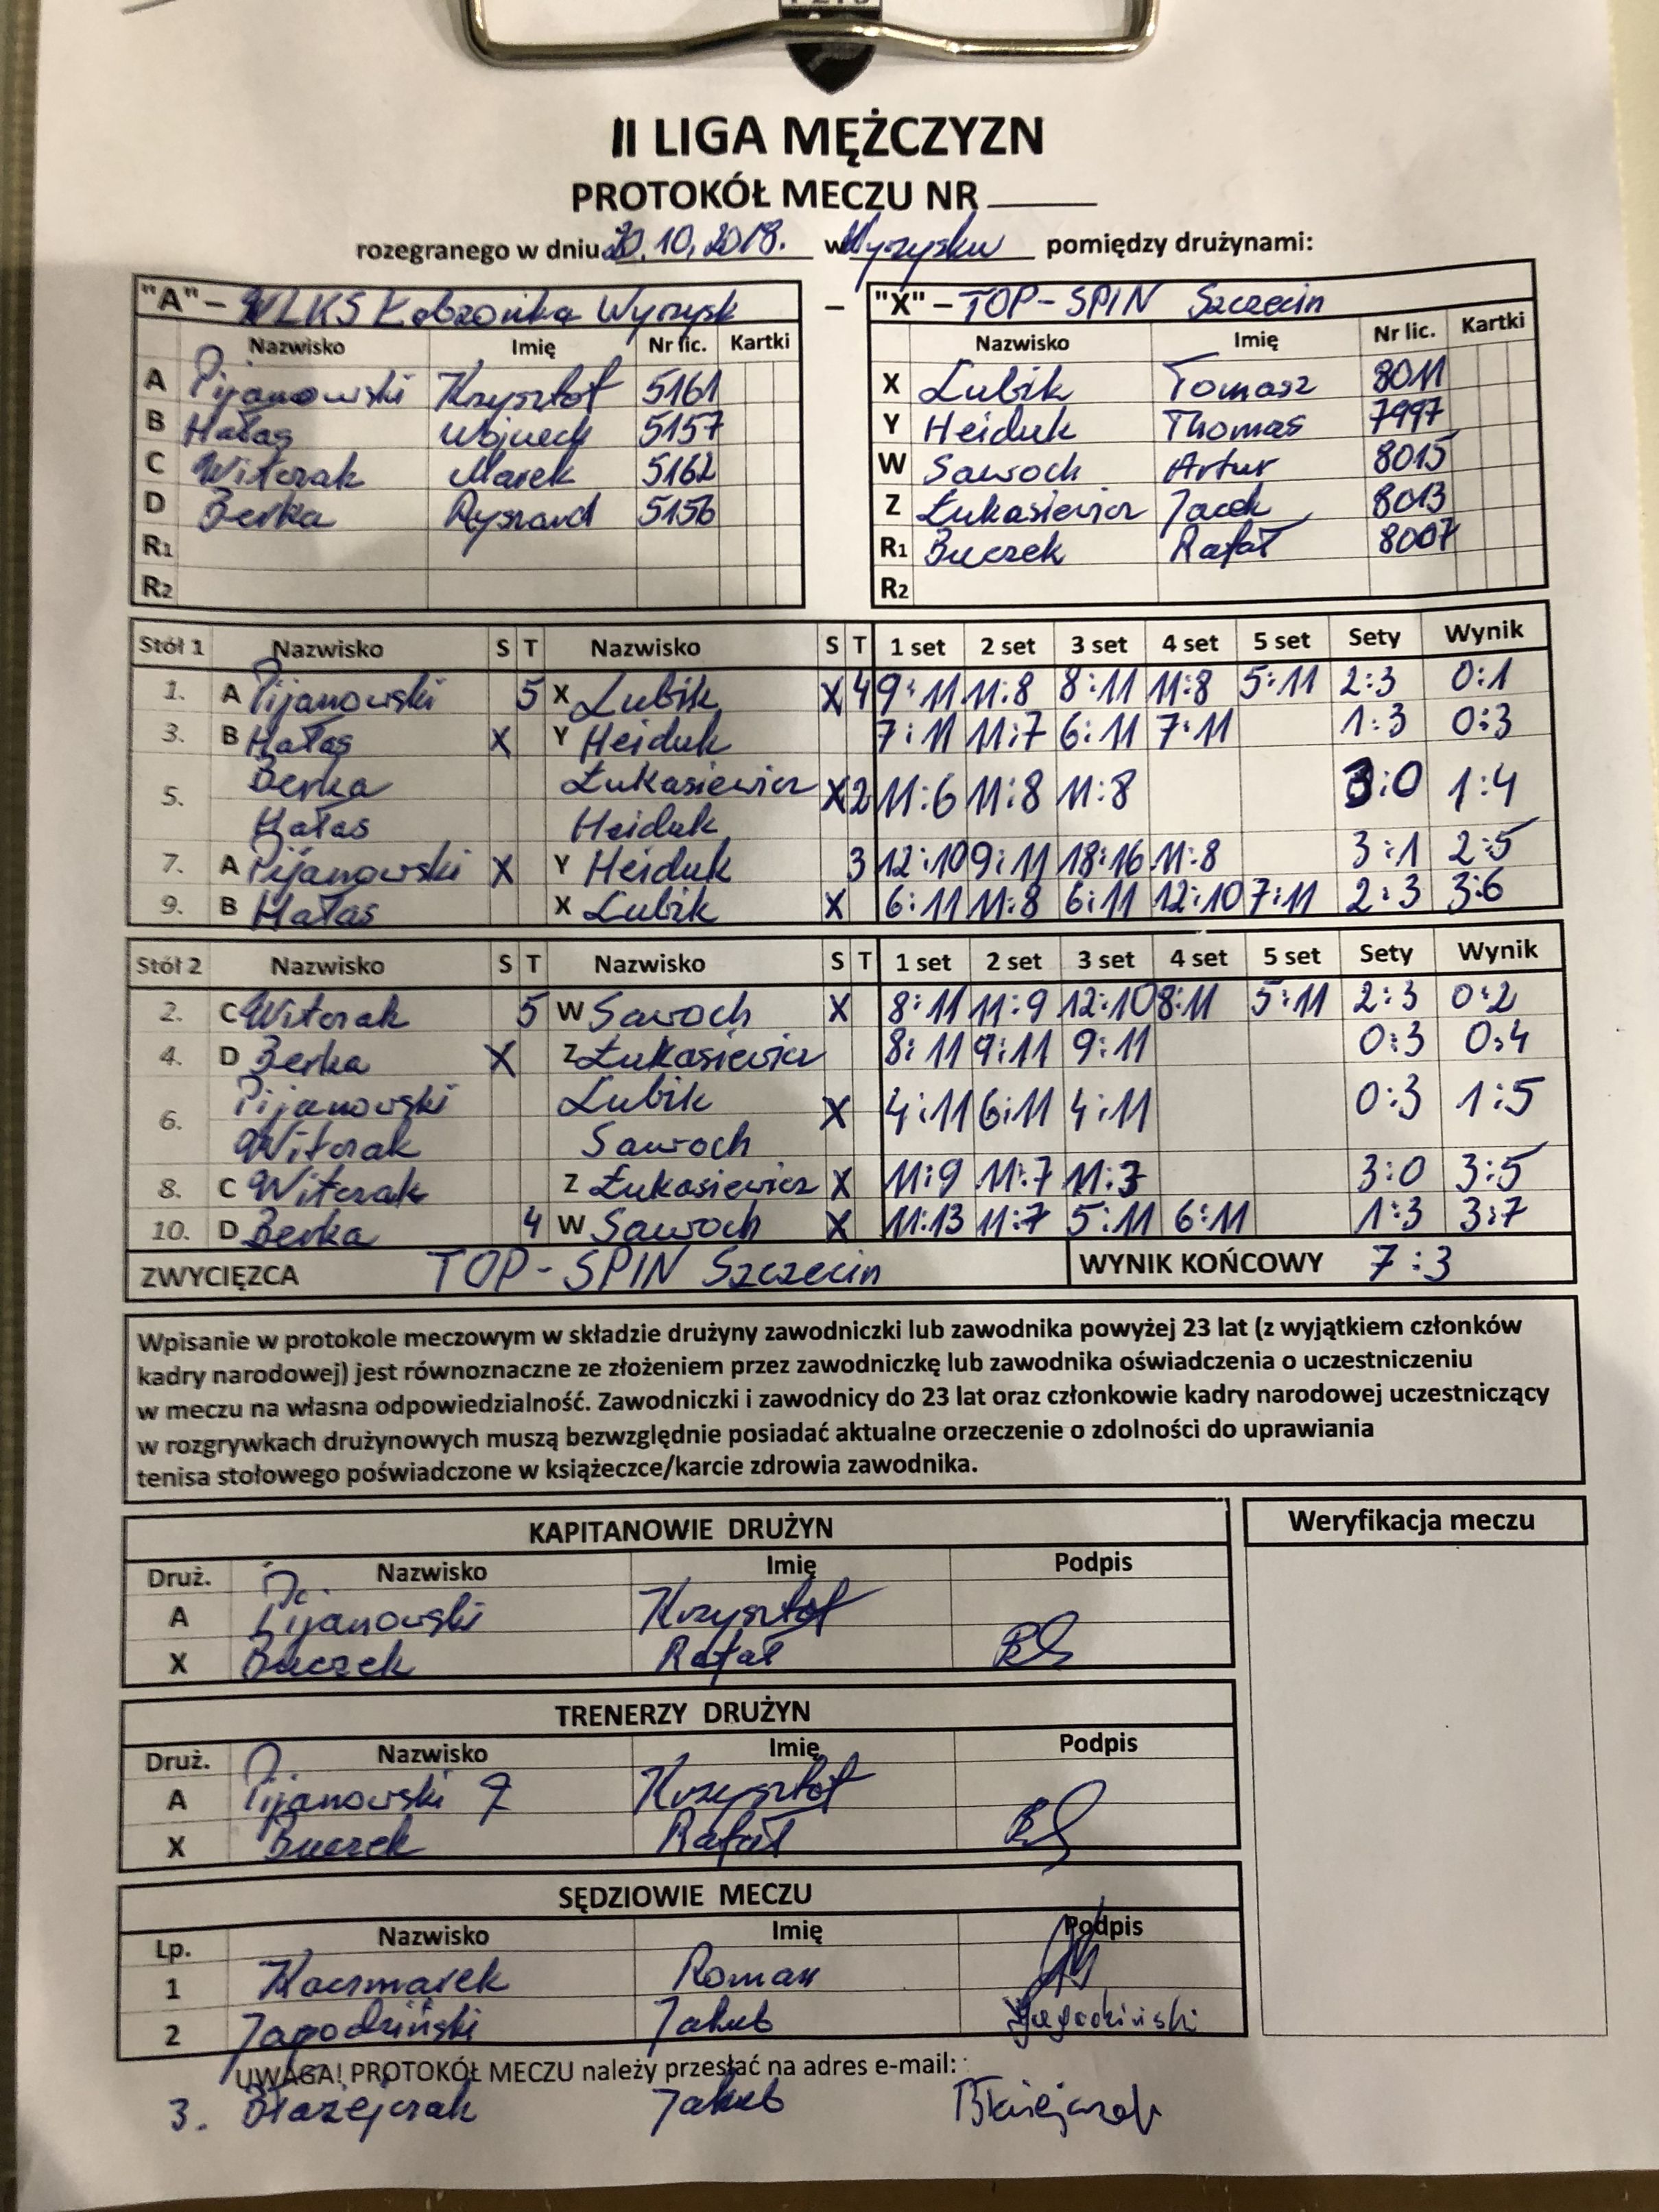 II LIGA MĘŻCZYZN
PROTOKÓŁ MECZU NR
rozegranego w dniu 20.10.2018. w Wyrzysku pomiędzy drużynami:
"A" – WLKS Łobzonka Wyrzysk – "X" – TOP-SPIN Szczecin
Nazwisko Imię Nr lic. Kartki Nazwisko Imię Nr lic. Kartki
A Pijanowski Krzysztof 5161 X Lubik Tomasz 8011
B Hałas Wojciech 5157 Y Heiduk Thomas 7997
C Witczak Marek 5162 W Sawoch Artur 8015
D Berka Ryszard 5156 Z Łukasiewicz Jacek 8013
R1 R1 Buczek Rafał 8007
R2 R2
Stół 1 Nazwisko S T Nazwisko S T 1 set 2 set 3 set 4 set 5 set Sety Wynik
1. A Pijanowski 5 X Lubik X 4 9:11 11:8 8:11 11:8 5:11 2:3 0:1
3. B Hałas X Y Heiduk 7:11 11:7 6:11 7:11 1:3 0:3
5. Berka Łukasiewicz X 2 11:6 11:8 11:8 3:0 1:4
Hałas Heiduk
7. A Pijanowski X Y Heiduk 3 12:10 9:11 18:16 11:8 3:1 2:5
9. B Hałas X Lubik X 6:11 11:8 6:11 12:10 7:11 2:3 3:6
Stół 2 Nazwisko S T Nazwisko S T 1 set 2 set 3 set 4 set 5 set Sety Wynik
2. C Witczak 5 W Sawoch X 8:11 11:9 12:10 8:11 5:11 2:3 0:2
4. D Berka X Z Łukasiewicz 8:11 9:11 9:11 0:3 0:4
6. Pijanowski Lubik X 4:11 6:11 4:11 0:3 1:5
Witczak Sawoch
8. C Witczak Z Łukasiewicz X 11:9 11:7 11:3 3:0 3:5
10. D Berka 4 W Sawoch X 11:13 11:7 5:11 6:11 1:3 3:7
ZWYCIĘZCA TOP-SPIN Szczecin WYNIK KOŃCOWY 7:3
Wpisanie w protokole meczowym w składzie drużyny zawodniczki lub zawodnika powyżej 23 lat (z wyjątkiem członków
kadry narodowej) jest równoznaczne ze złożeniem przez zawodniczkę lub zawodnika oświadczenia o uczestniczeniu
w meczu na własna odpowiedzialność. Zawodniczki i zawodnicy do 23 lat oraz członkowie kadry narodowej uczestniczący
w rozgrywkach drużynowych muszą bezwzględnie posiadać aktualne orzeczenie o zdolności do uprawiania
tenisa stołowego poświadczone w książeczce/karcie zdrowia zawodnika.
KAPITANOWIE DRUŻYN Weryfikacja meczu
Druż. Nazwisko Imię Podpis
A Pijanowski Krzysztof
X Buczek Rafał
TRENERZY DRUŻYN
Druż. Nazwisko Imię Podpis
A Pijanowski Krzysztof
X Buczek Rafał
SĘDZIOWIE MECZU
Lp. Nazwisko Imię Podpis
1 Kaczmarek Roman
2 Jagodziński Jakub Jagodziński
UWAGA! PROTOKÓŁ MECZU należy przesłać na adres e-mail:
3. Błażejczak Jakub Błażejczak